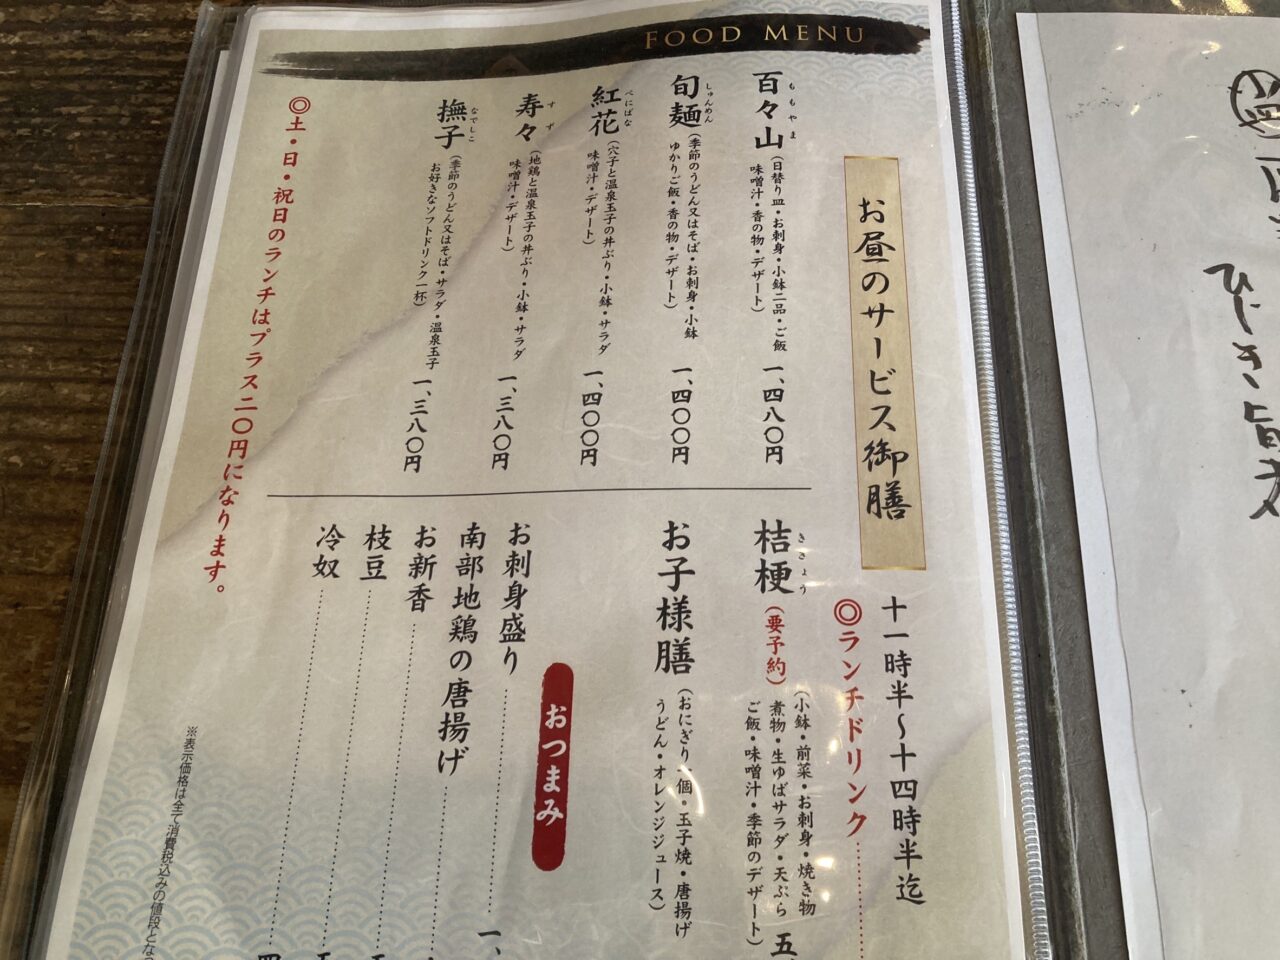 FOOD MENU
お昼のサービス御膳
十一時半～十四時半迄
◎ランチドリンク
ももやま
百々山
(日替り皿・お刺身・小鉢二品・ご飯
味噌汁・香の物・デザート)
一、四八〇円
しゅんめん
旬麺
(季節のうどん又はそば・お刺身・小鉢
ゆかりご飯・香の物・デザート)
一、四〇〇円
べにばな
紅花
(穴子と温泉玉子の丼ぶり・小鉢・サラダ
味噌汁・デザート)
一、四〇〇円
すず
寿々
(地鶏と温泉玉子の丼ぶり・小鉢・サラダ
味噌汁・デザート)
一、三八〇円
なでしこ
撫子
(季節のうどん又はそば・サラダ・温泉玉子
お好きなソフトドリンク一杯)
一、三八〇円
◎土・日・祝日のランチはプラス二〇円になります。
ききょう
桔梗
(要予約)
(小鉢・前菜・お刺身・焼き物
煮物・生ゆばサラダ・天ぷら
ご飯・味噌汁・季節のデザート)
五、
お子様膳
(おにぎり一個・玉子焼・唐揚げ
うどん・オレンジジュース)
おつまみ
お刺身盛り
一、
南部地鶏の唐揚げ
お新香
枝豆
冷奴
※表示価格は全て消費税込みの値段とな
ひじき旨煮